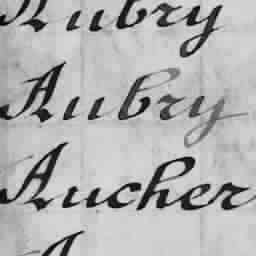 Aubry
Aubry
Aucher